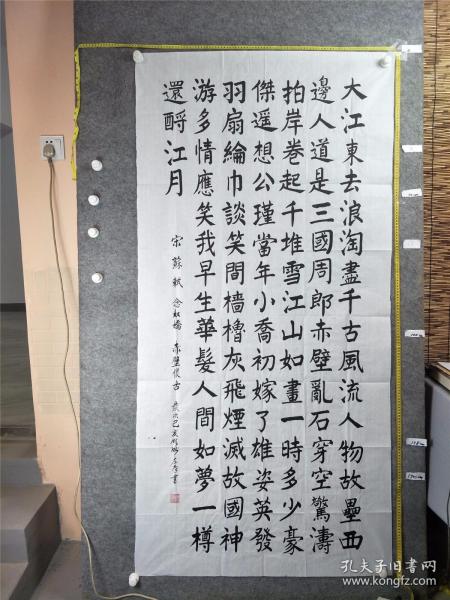 大江東去浪淘盡千古風流人物故壘西
邊人道是三國周郎赤壁亂石穿空驚濤
拍岸卷起千堆雪江山如畫一時多少豪
傑遥想公瑾當年小喬初嫁了雄姿英發
羽扇綸巾談笑間檣櫓灰飛煙滅故國神
游多情應笑我早生華髮人間如夢一樽
還酹江月
宋蘇軾念奴嬌 赤壁懷古 歲次己亥 書
孔夫子旧书网
www.kongfz.com